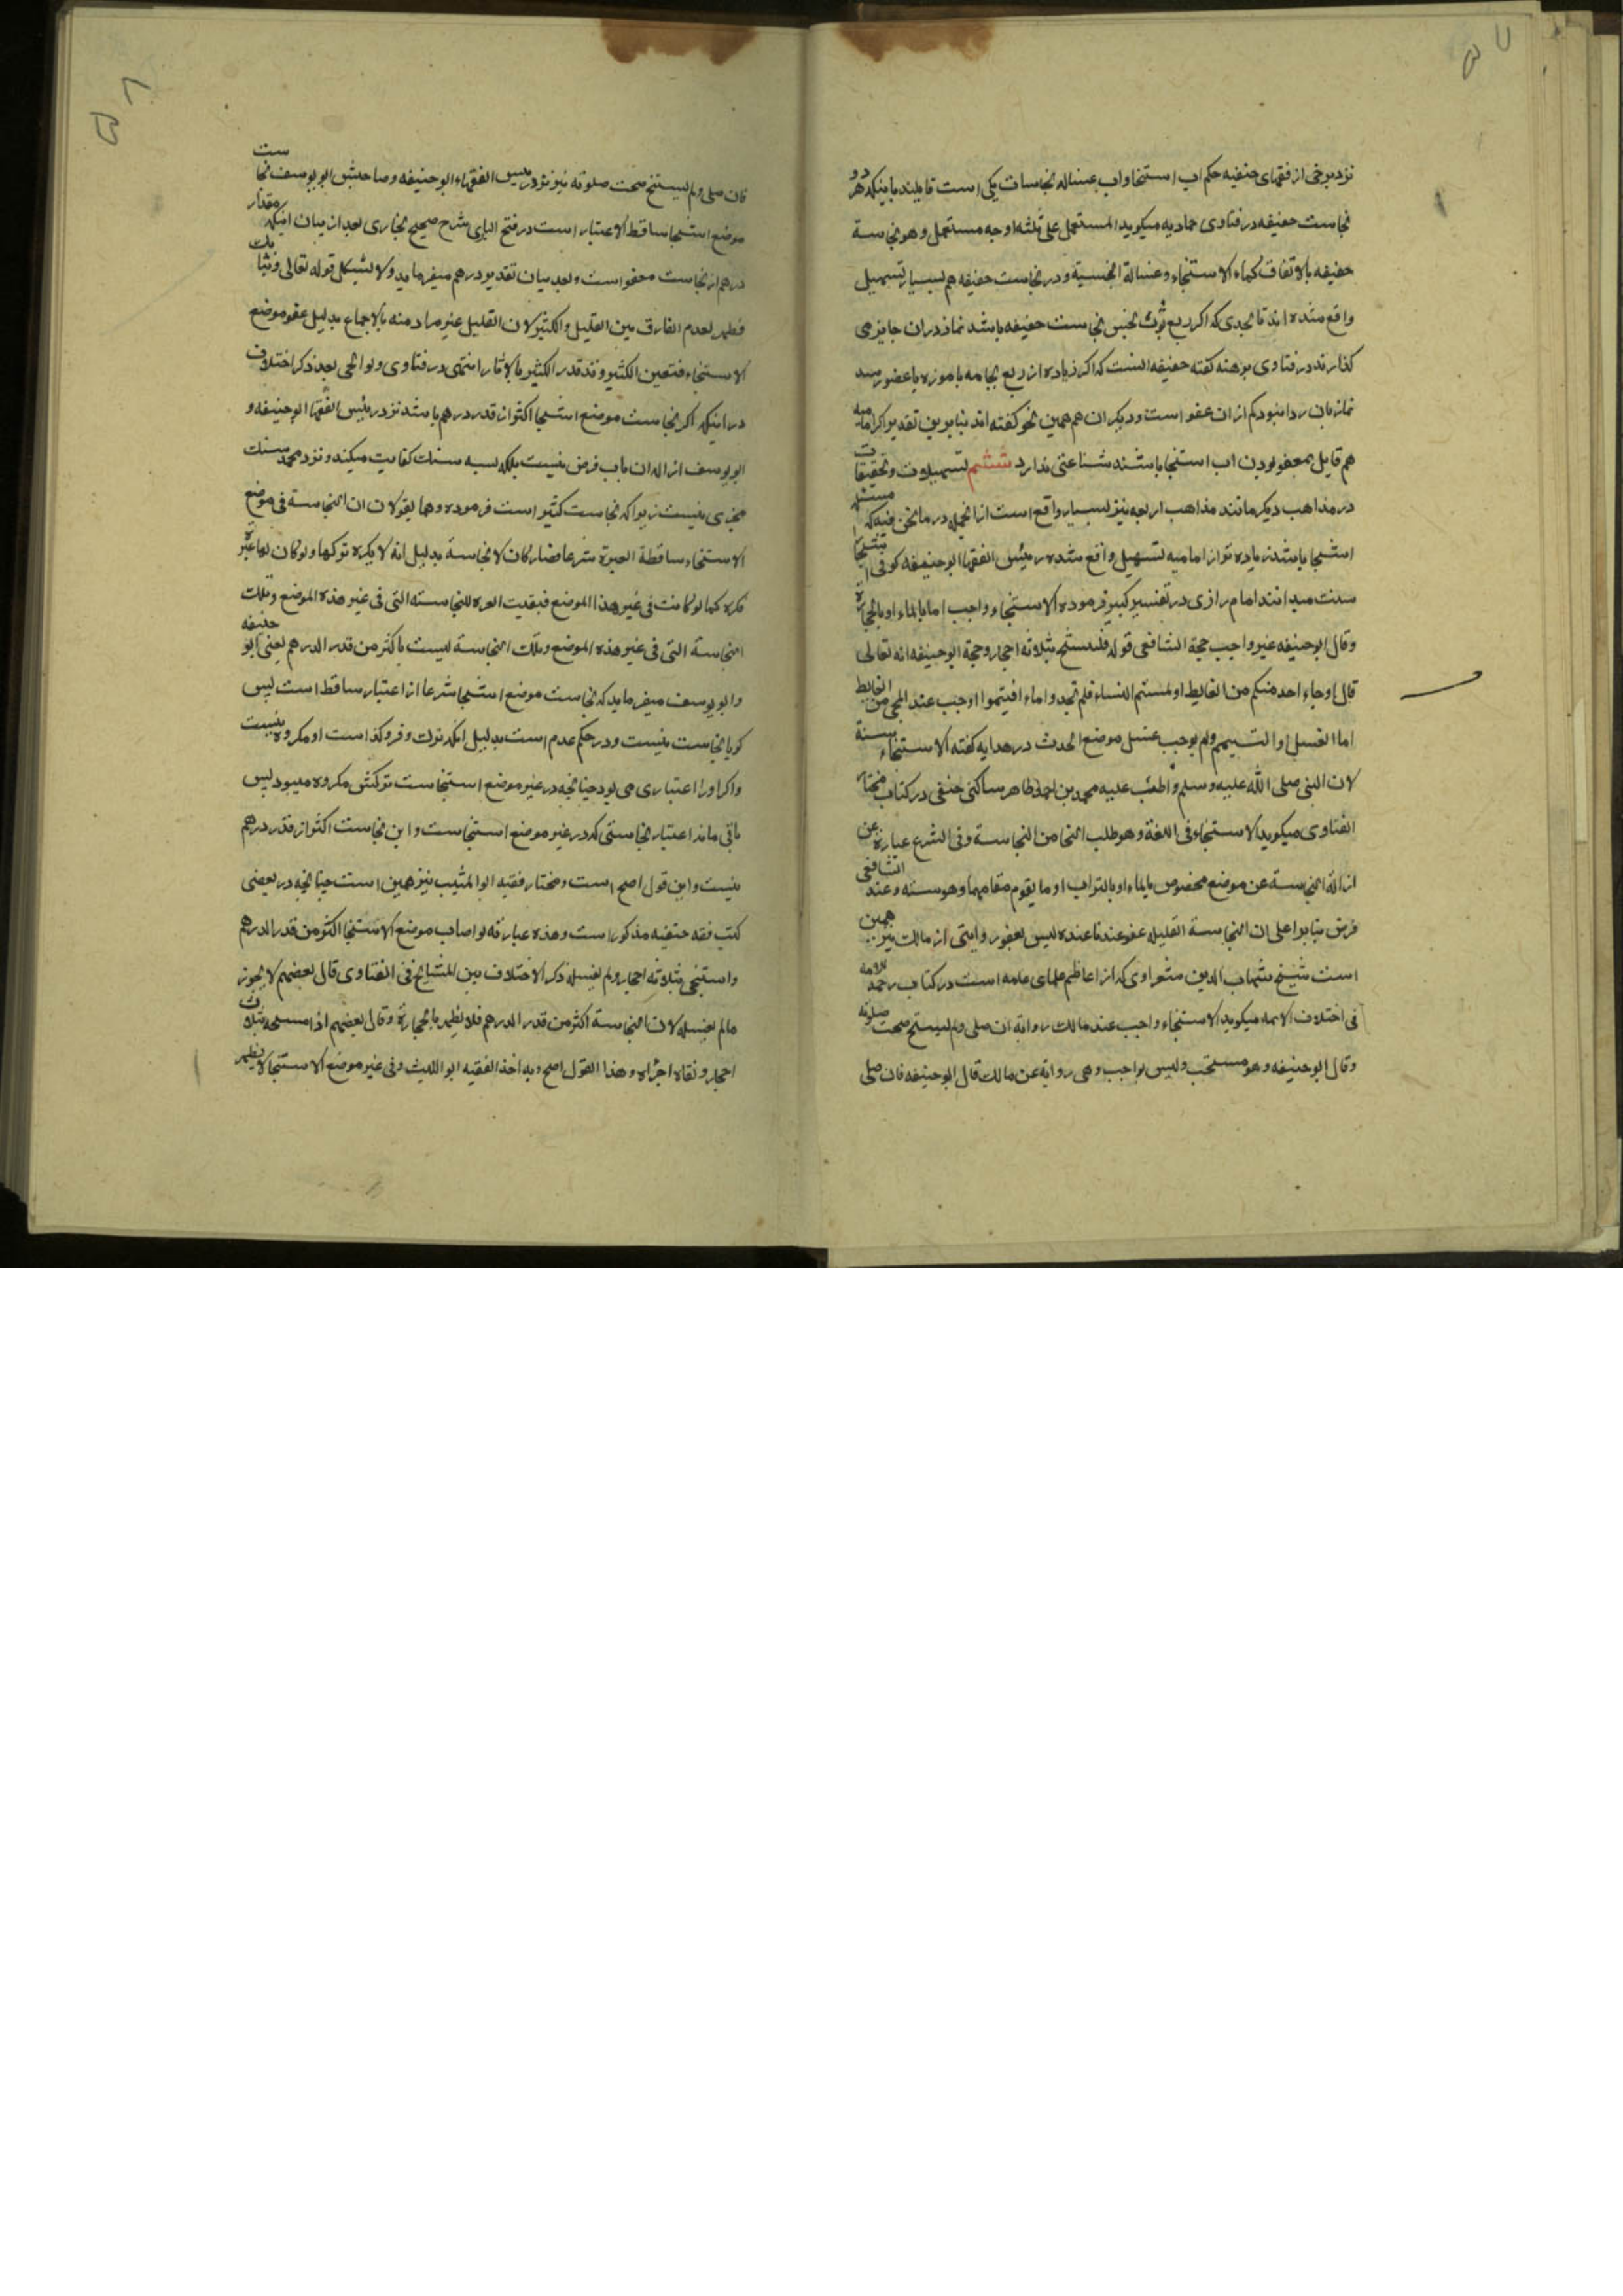 نزد برخی از فقهای حنفیه حکم اب استنجا و اب غساله نجاسات یکی است قایلند باینکه هر دو
نجاست خفیفه در فتاوی حمادیه میکوید المستعمل علی ثلثه اوجه مستعمل و هو نجاسة
خفیفه بالاتفاق کماء الاستنجاء و غسالة النجسیة و در نجاست خفیفه هم بسیار تسهیل
واقع شده اند تا بحدی که اکر ربع ثوب بنجس نجاست خفیفه باشد نماز دران جایز می
کذارند در فتاوی برهنه کفته خفیفه انست که اکر زیاده از ربع بجامه یا موزه یا عضو رسد
نماز بان روا نبود کم از ان عفو است و دیکران هم همین نحو کفته اند بنابرین تقدیر اکر امامیه
هم قایل بمعفو بودن اب استنجا باشند شناعتی ندارد ششم تسهیلات و تخفیفات
در مذاهب دیکر مانند مذاهب اربعه نیز بسیار واقع است از انجمله در ما نحن فیه که مسئله
استنجا باشد زیاده تر از امامیه تسهیل واقع شده رئیس الفقها ابو حنیفه کوفی استنجا
سنت میدانند امام رازی در تفسیر کبیر فرموده الاستنجاء واجب اما بالماء او بالحجارة
وقال ابو حنیفه غیر واجب حجة الشافعی قوله فلیستنج بثلاثه احجار و حجة ابو حنیفه انه تعالی
قال او جاء احد منکم من الغایط او لمستم النساء فلم تجدوا ماء افتیمموا اوجب عند المجی من الغایط
اما الغسل او التیمم ولم یوجب غسل موضع الحدث در هدایه کفته الاستنجاء سنة
لان النبی صلی الله علیه وسلم واظب علیه محمد بن احمد طاهر ساکنی حنفی در کتاب مختار
الفتاوی میکوید الاستنجاء فی اللغة و هو طلب النجا من النجاسة و فی الشرع عبارة عن
ازالة النجاسة عن موضع مخصوص بالماء او بالتراب او ما یقوم مقامهما و هو سنه و عند الشافعی
فرض بنابرا علی ان النجاسة القلیله عفو عندنا عنده لیس بعفو و روایتی از مالک نیز همین
است شیخ شهاب الدین شعراوی که از اعاظم علمای عامه است در کتاب رحمة الامه
فی اختلاف الایمه میکوید الاستنجاء واجب عند مالک روایه ان صلی ولم یستنج صحت صلوته
وقال ابو حنیفه و هو مستحب و لیس بواجب و هی روایه عن مالک قال ابو حنیفه فان صلی
فان صلی ولم یستنج صحت صلوته نیز نزد رییس الفقهاء ابو حنیفه و صاحبش ابو یوسف نجاست
موضع استنجا ساقط الاعتبار است در فتح الباری شرح صحیح بخاری بعد از بیان اینکه مقدار
درهم از نجاست معفو است و بعد بیان تقدیر درهم میفرماید ولا یشکل قوله تعالی و ثیابک
فطهر لعدم الفارق بین القلیل و الکثیر لان القلیل غیر مراد منه بالاجماع بدلیل عفو موضع
الاستنجاء فتعین الکثیر و قد قدر الکثیر بالاثار انتهی در فتاوی ولوالجی بعد ذکر اختلاف
در اینکه اکر نجاست موضع استنجا اکثر از قدر درهم باشد نزد رئیس الفقها ابو حنیفه و
ابو یوسف ازاله ان باب فرض نیست بلکه بسه سنک کفایت میکند و نزد محمد سنک
مجزی نیست زیرا که نجاست کثیر است فرموده و هما یقولان ان النجاسة فی موضع
الاستنجاء ساقطة العبرة شرعا فصار کان لا نجاسة بدلیل انه لا یکره ترکها ولو کان لها عبرة
فکره کما لو کانت فی غیر هذا الموضع فبقیت العبره للنجاسته التی فی غیر هذه الموضع و تلک
النجاسة التی فی غیر هذه الموضع و تلک النجاسة لیست باکثر من قدر الدرهم یعنی ابو حنیفه
و ابو یوسف میفرماید که نجاست موضع استنجا شرعا از اعتبار ساقط است پس
کویا نجاست نیست و در حکم عدم است بدلیل انکه ترک و فرو کذاشت او مکروه نیست
و اکر او را اعتباری می بود چنانچه در غیر موضع استنجاست ترکش مکروه میبود پس
باقی ماند اعتبار نجاستی که در غیر موضع استنجاست و این نجاست اکثر از قدر درهم
نیست و این قول اصح است و مختار فقیه ابو اللیث نیز همین است چنانچه در بعضی
کتب فقه حنفیه مذکور است و هذه عبارته لو اصاب موضع الاستنجا اکثر من قدر الدرهم
و استنجی بثلاثه احجار ولم یغسله ذکر الاختلاف بین المشایخ فی الفتاوی قال بعضهم لا یجوز
مالم یغسله لان النجاسة اکثر من قدر الدرهم فلا یطهر بالحجارة و قال بعضهم اذا مسحه بثلاث
احجار و نقاه اجزاه و هذا القول اصح و به اخذ الفقیه ابو اللیث و فی غیر موضع الاستنجا لا یطهر